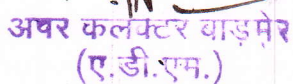 अपर कलेक्टर बाड़मेर
(ए.डी.एम.)